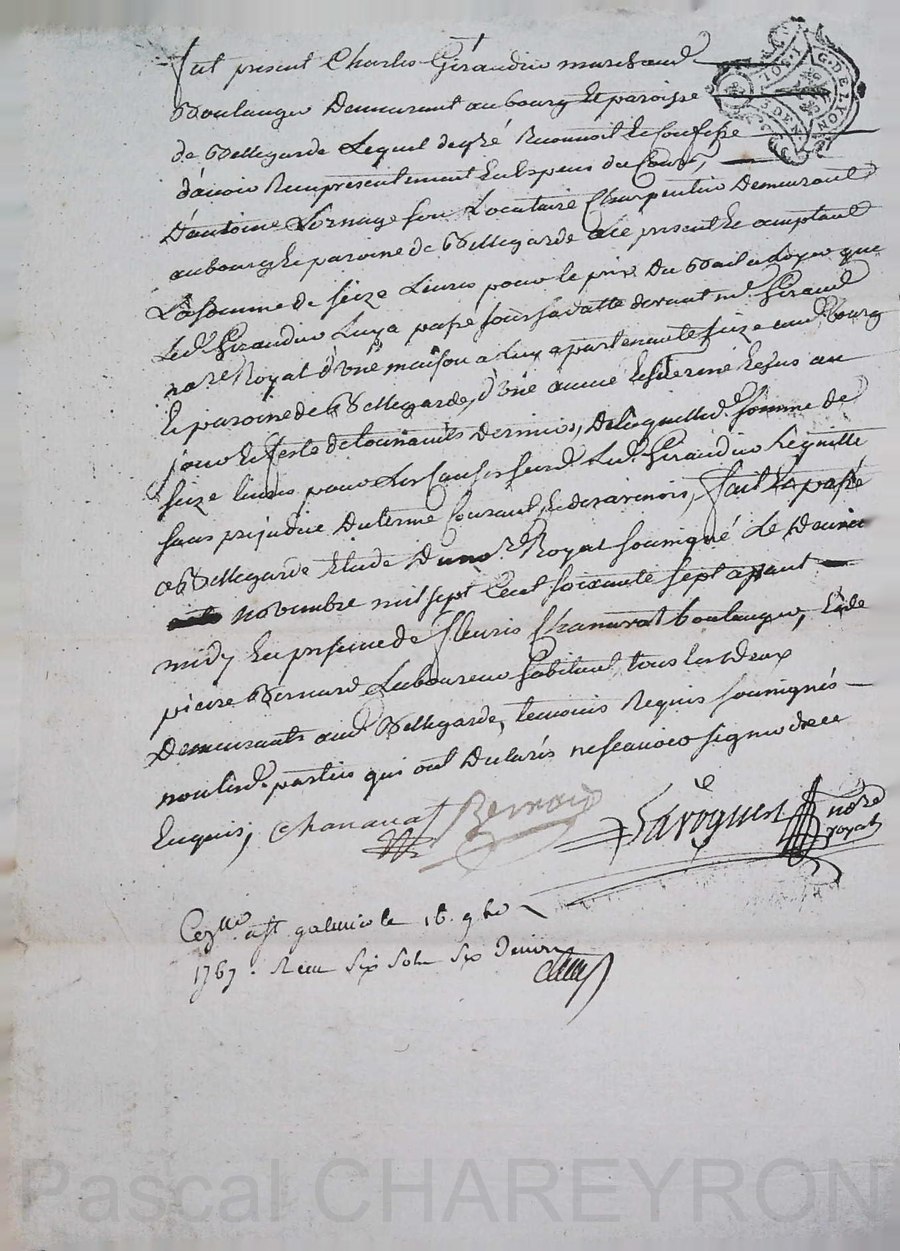 fut présent Charles Giraudier marchand
Boulanger Demeurant au bourg Et paroisse
de Bellegarde Lequel de gré Reconnoit Et Confesse
d'avoir Reçu présentement En Espèces du Cours,
D'antoine Lornage son Locataire Charpentier Demeurant
au bourg Et paroisse de Bellegarde a ce présent Et acceptant
La somme de seize Livres pour le prix Du Bail a Loyer que
Led Giraudier Luy a passé sous sa datte devant me Giraud
nore Royal d'une maison a Luy apartenante size aud Bourg
Et paroisse de Bellegarde, d'une année Echue au
jour Et feste de toussaints Dernier, De laquelle d. somme de
seize livres pour Les Causes susd. Led Giraudier Le quitte
sans préjudice Du terme Courant, fait Et passé
a Bellegarde Etude Du nore Royal soussigné Le
novembre mil sept Cent soixante sept avant
midy En présence de fleuris Chanavat boulanger, Et de
pierre Bernard Laboureur habitant tous Les Deux
Demeurants aud Bellegarde, temoins Requis soussignés
non Lesd. parties qui ont Déclarés ne scavoir signer de ce
Enquis, Chanavat Bernard nore
royal
Cez lle a st galmier le 16. 9bre
1767. Recu six sols six Deniers
G. DE LYON
SOLS
DEN.
Pascal CHAREYRON